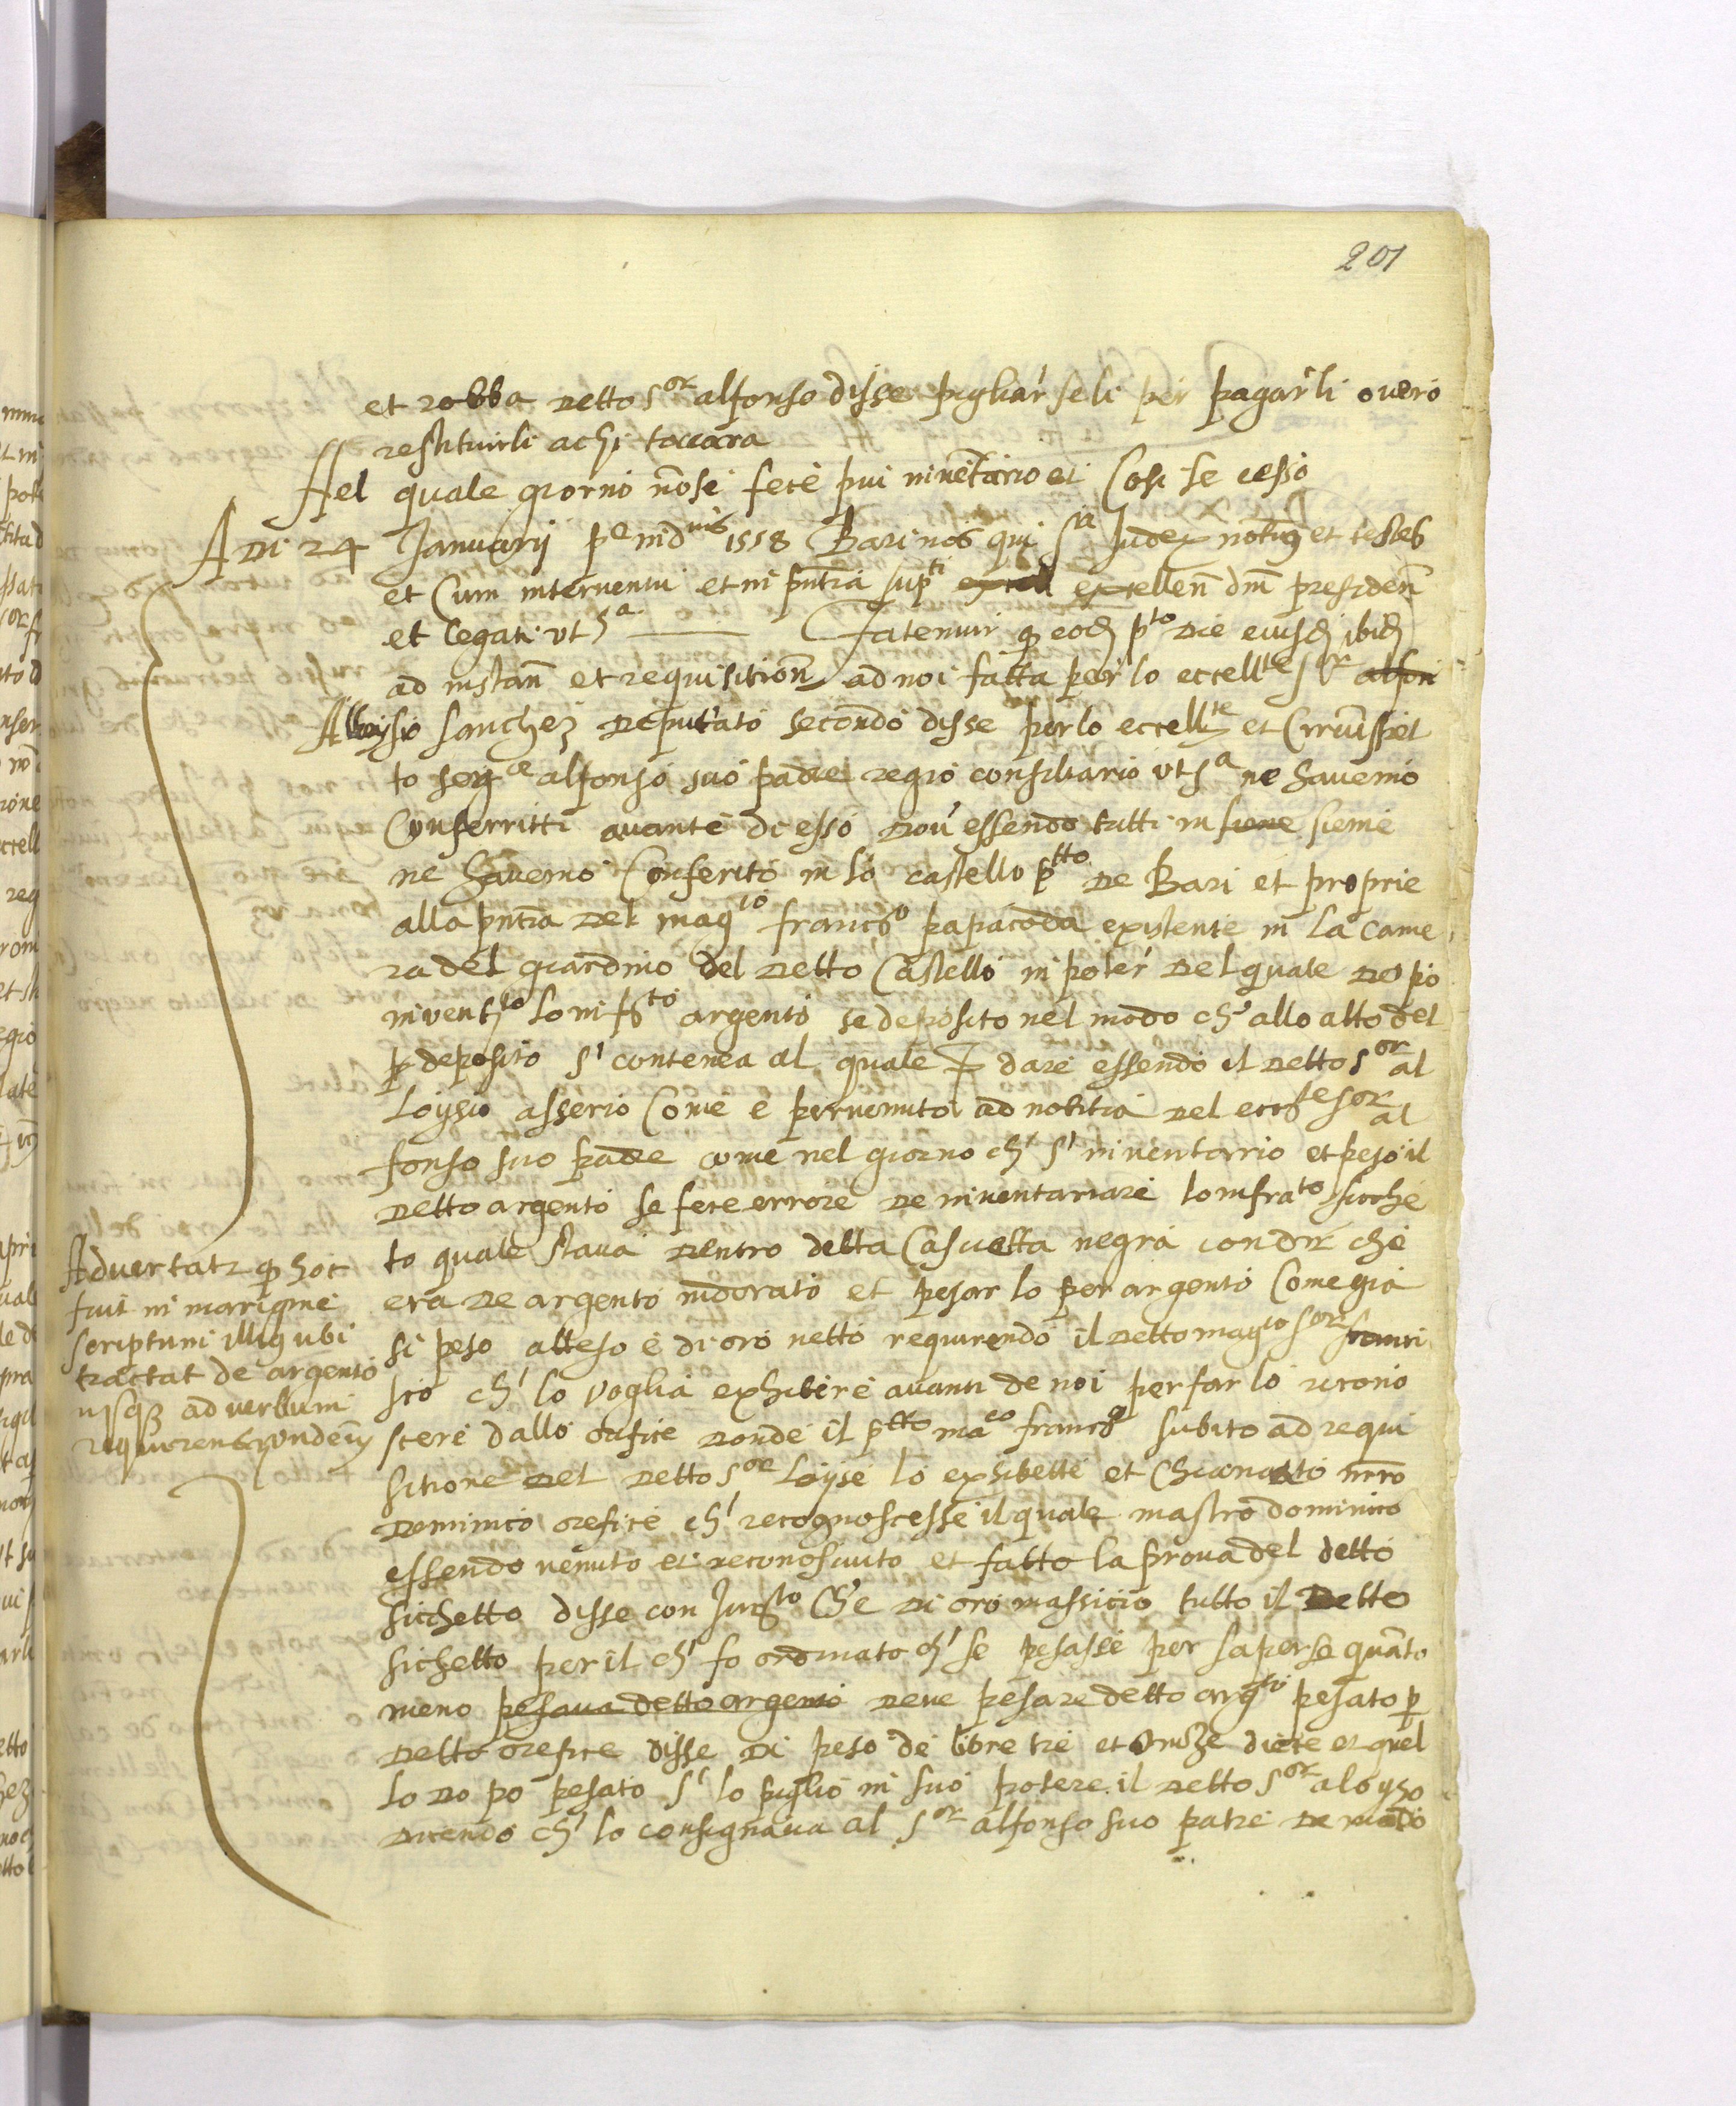 201
et robba detto s.or alfonso disse pigliar seli per pagarli overo
restituirli a chi toccara
Nel quale giorno nõ se fece piu inventario et Cosi se cessò
A di 24 Januarij p.e ind.nis 1558 Bari nos qui s.a Judex notariꝰ et testes
et Cum interventu et in pñtia sup.ti excell excellen̄ dm̄ presiden̄
et legati ut s.a ——— Fatemur q̨ eod̨ p.to die eiusd̨ ibid̨
ad instan̄ et requisition̄ ad noi fatta per lo eccell.te s.or alfon
Alloysio sanchez deputato secondo disse per lo eccell.te et Circũspet
to sig.re alfonso suo padre regio consiliario ut s.a ne havemo
Conferritti avante di esso dov' essendo tutti in sieme sieme
ne havemo Conferito in lo castello p.tto de Bari et proprie
alla pñtia del mag.co franc.o papacoda existente in la came
ra del giardino del detto Castello in poter del quale dopo
invent.to lo infr.to argento se deposito nel modo ch' allo atto del
p̱ deposito s' contenea al quale dare essendo il detto s.or al
loysio asserio Come è pervenuto ad notitia del ecc.te s.or al
fonso suo padre come nel giorno ch' s' inventario et peso il
detto argento se fece errore de inventariare lo infra.to sicche
to quale stava dentro detta Cascetta negra con dir che
era de argento indorato et pesar lo per argento Come già
si peso atteso è di oro netto requirendo il detto mag.co s.or franci
sco ch' lo voglia exhibere avanti de noi per far lo ricono
scere dallo orefice donde il p.tto ma.co franc.o subito ad requi
sitione del detto s.or loyse lo exhibette et Chiamato m̃ro
Dominico orefice ch' recognoscesse il quale mastro dominico
essendo venuto et reconosciuto et fatto la prova del detto
sicchetto disse con Jur.to Ch' è di oro massicio tutto il detto
sichetto per il ch' fo ordinato ch' se pesasse per saperse quãto
meno pesava detto argento deve pesare detto arg.to pesato p̱
detto orefice disse di peso de libre tre et onze diece et quel
lo dopo pesato s' lo piglio in suo potere il detto s.or aloyso
dicendo ch' lo consignava al s.or alfonso suo patre de modo
Advertatr q̨ hoc
fuit in margine
scriptum illiꝰ ubi
tractat de argento
usq̨ ad verbum